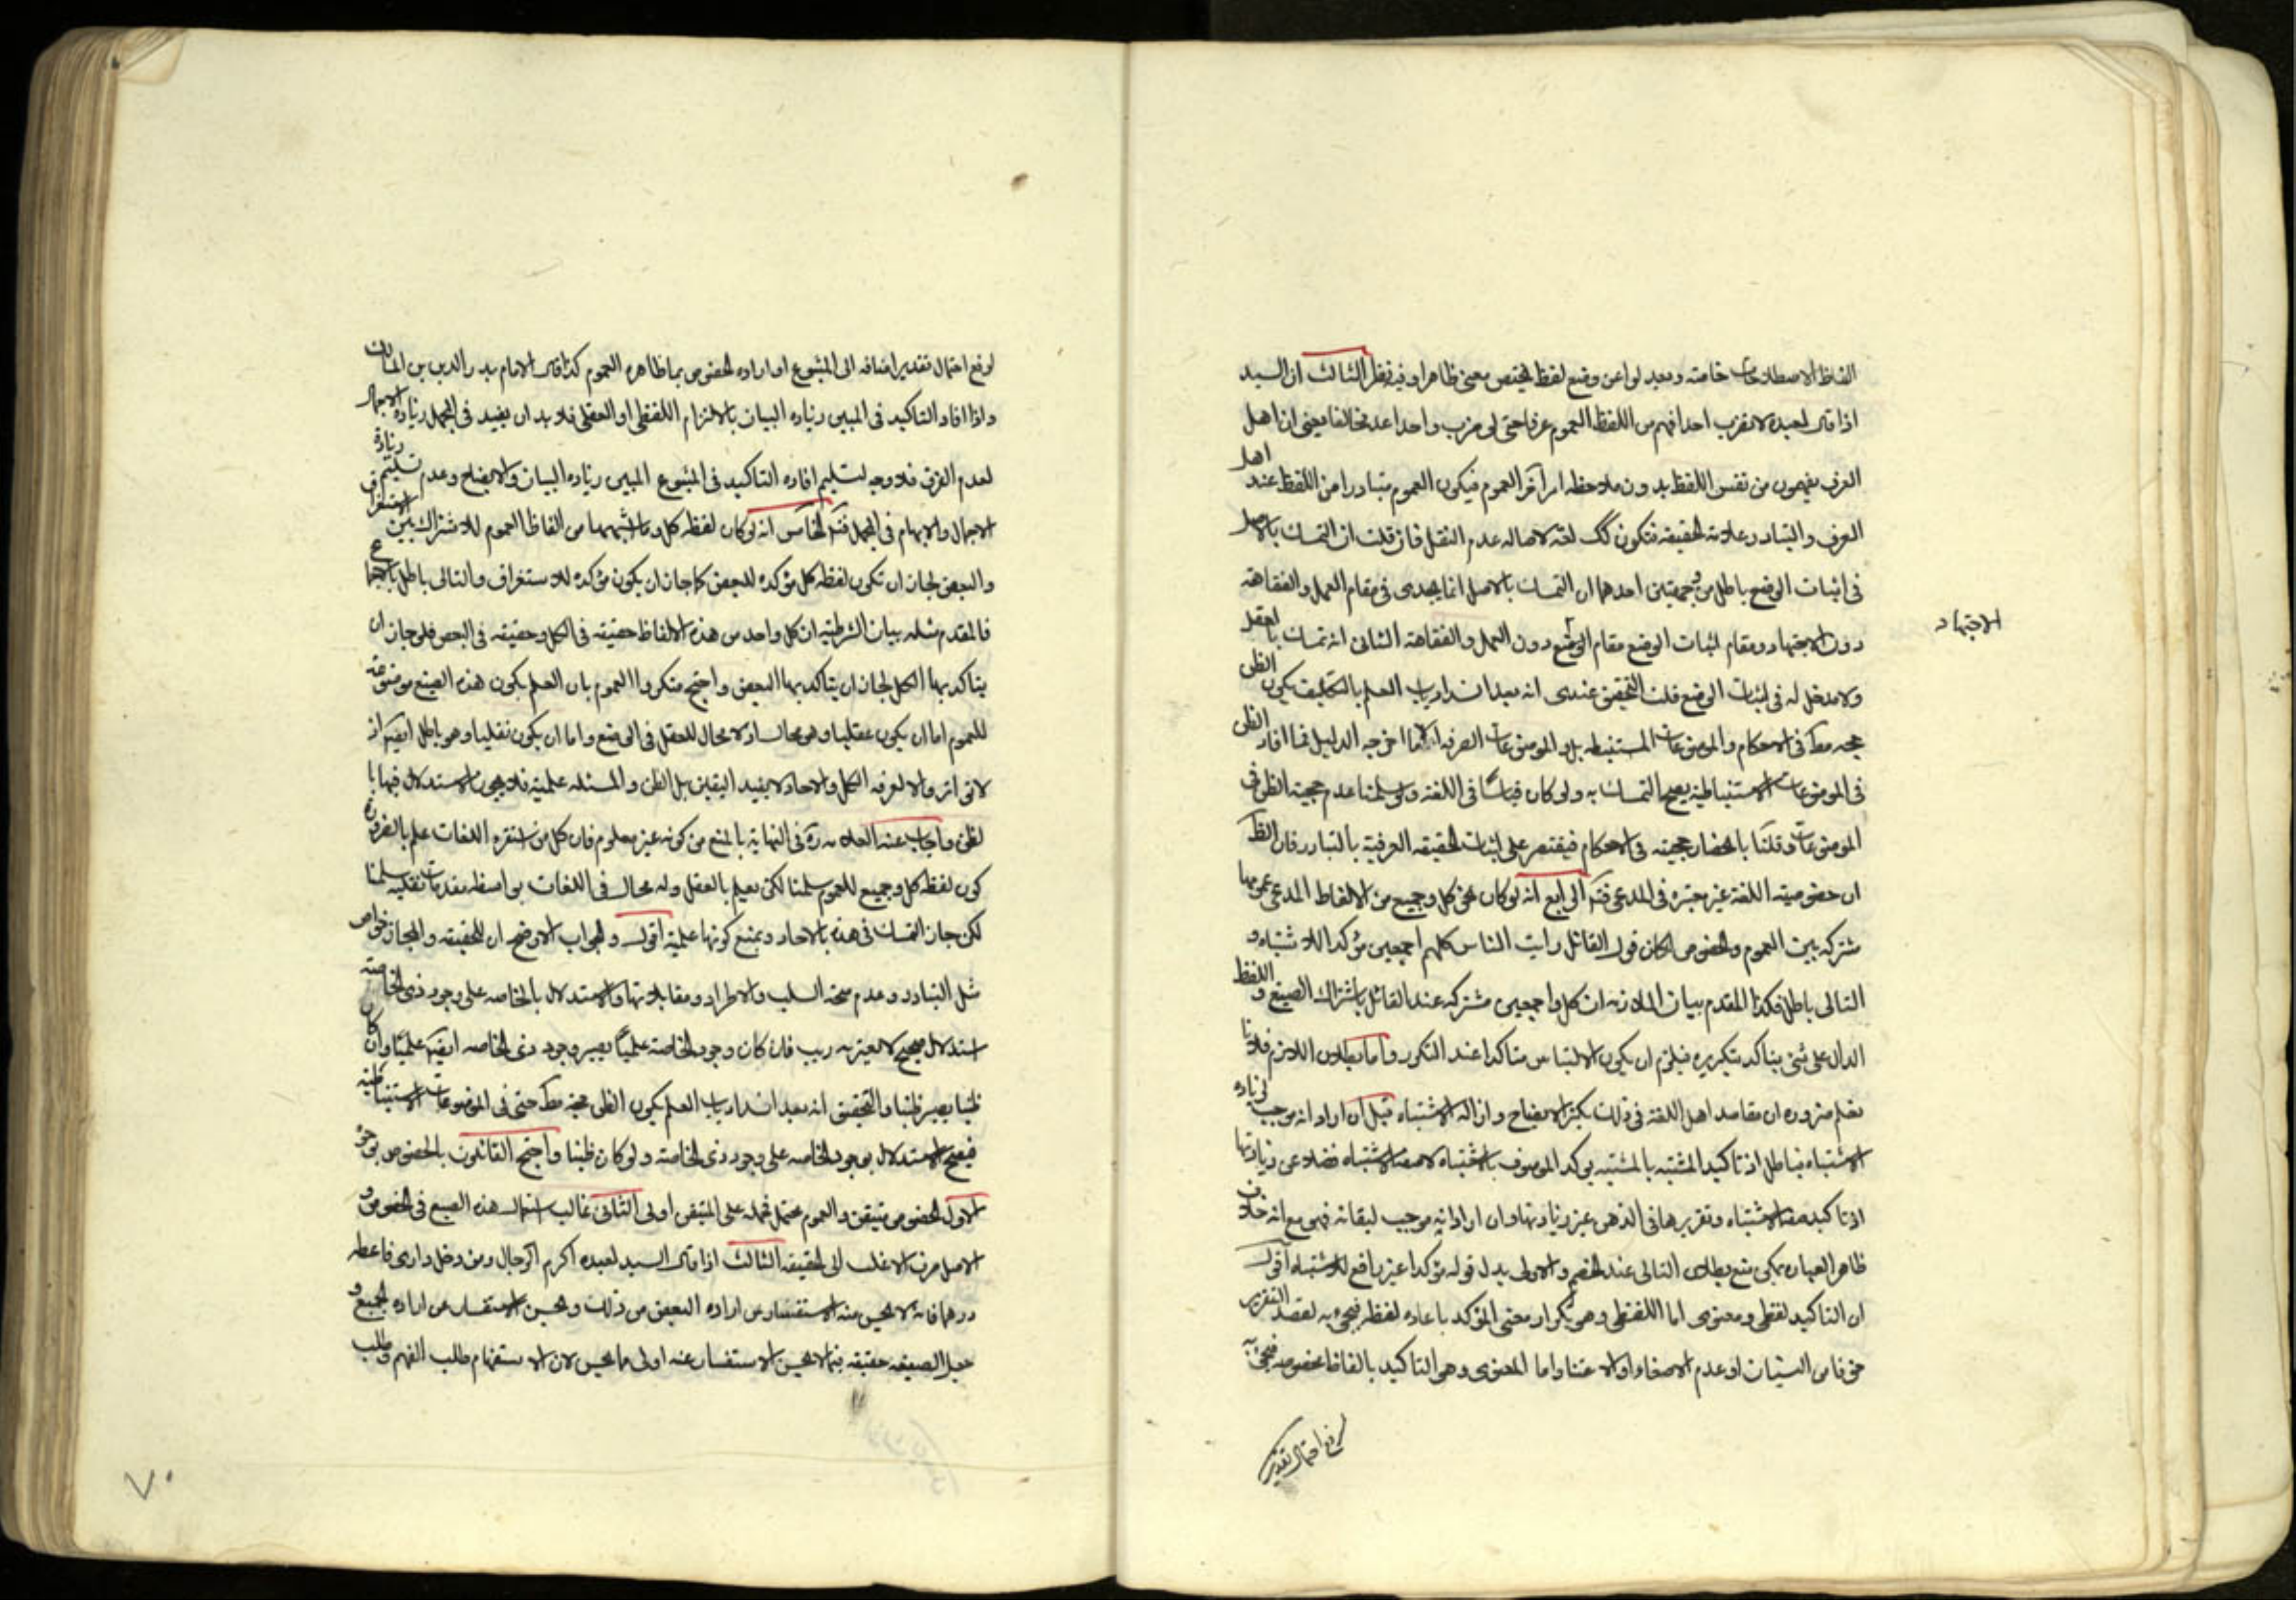 الفاظ الاصطلاحات خاصته وبعيد لواعن وضع لفظ يختص معنى ظاهرا وفيه نظر الثالث ان السيد
اذا قال لعبده لا تضرب احدا فهم من اللفظ العموم عرفا حتى لو ضرب واحدا عد مخالفا يعنى ان اهل
العرف يفهمون من نفس اللفظ بدون ملاحظه امر آخر العموم فيكون العموم متبادرا من اللفظ عند اهل
العرف والتبادر علامة الحقيقه فتكون كك لغة لاصاله عدم النقل فان قلت ان التمسك بالاصل
فى اثبات الوضع باطل من وجهتين احدهما ان التمسك بالاصل انما يجدى فى مقام العمل والفقاهة
الاجتهاد
دون الاجتهاد ومقام اثبات الوضع مقام دون العمل والفقاهة الثانى انه تمسك بالعقل
ولا مدخل له فى اثبات الوضع قلت التحقيق عندى انه بعد انسداد باب العلم بالتكليف يكون الظن
حجه مط فى الاحكام والموضوعات المستنبطه بل والموضوعات الصرفه الا ما اخرجه الدليل فما افاد الظن
فى الموضوعات الاستنباطية يصح التمسك به ولو كان قياسا فى اللغة ولو سلمنا عدم حجية الظن فى
الموضوعات وقلنا بانحصار حجيته فى الاحكام فيقتصر على اثبات الحقيقه العرفية بالتبادر فان الظ
ان خصوصية اللغة غير معتبره فى المدعى فتم الرابع انه لو كان نحو كل وجميع من الالفاظ المدعى عمومها
مشتركه بين العموم والخصوص لكان قول القائل رايت الناس كلهم اجمعين مؤكدا للاشتباه و
التالى باطل فكذا المقدم بيان الملازمه ان كل واجمعين مشتركه عند القائل باشتراك الصيغ واللفظ
الدال على شئ يتاكد بتكريره فيلزم ان يكون الالتباس متاكدا عند التكرر واما بطلان اللازم فلانا
نعلم ضروره ان مقاصد اهل اللغة فى ذلك تكثير الايضاح وازاله الاشتباه قيل ان اراد انه موجب لزياده
الاشتباه فباطل اذ تاكيد المشتبه بالمشتبه يوكد الموصوف بالاشتباه لا صفة الاشتباه فضلا عن زيادتها
اذ تاكيد صفة الاشتباه وتقريرها فى الذهن غير زيادتها وان اراد انه موجب لبقائه فهو مع انه خلاف
ظاهر العباره يمكن منع بطلان التالى عند الخصم والاولى بدل قوله مؤكدا غير رافع للاشتباه اقول
ان التاكيد لفظى ومعنوى اما اللفظى وهو تكرار معنى المؤكد باعاده لفظه فيجئ به لقصد التقرير
خوفا من النسيان او عدم الاصغاء او الاعتناء واما المعنوى وهو التاكيد بالفاظ مخصوصه فيجئ به
لرفع احتمال تقدير
لرفع احتمال تقدير اضافه الى المتبوع او اراده الخصوص بما ظاهره العموم كذا قال الامام بدر الدين بن المالك
واذا افاد التاكيد فى المبين زياده البيان بالالتزام اللفظى او العقلى فلا بد ان يفيد فى المجمل زياده الاجمال
لعدم الفرق فلا وجه لتسليم افاده التاكيد فى المتبوع المبين زياده البيان والايضاح وعدم تسليم زيادة
الاجمال والابهام فى المجمل فتم الخامس انه لو كان لفظه كل وما شبهها من الفاظ العموم للاشتراك بين الاستغراق
والبعض لجاز ان تكون لفظه كل مؤكده للبعض كما جاز ان يكون مؤكده للاستغراق والتالى باطل بالاجماع
فالمقدم مثله بيان الشرطيه ان كل واحد من هذه الالفاظ حقيقه فى الكل وحقيقه فى البعض فلو جاز ان
يتاكد بها الكل لجاز ان يتاكد بها البعض واحتج منكروا العموم بان العلم بكون هذه الصيغ موضوعة
للعموم اما ان يكون عقليا وهو محال اذ لا مجال للعقل فى الوضع واما ان يكون نقليا وهو باطل ايضا اذ
لا تواتر والا لعرفه الكل والاحاد لا يفيد اليقين بل الظن والمسئله علمية فلا يجوز الاستدلال فيها با
لظن واجاب عنه العلامه ره فى النهاية بالمنع من كونه غير معلوم فان كل من استقرء اللغات علم بالضرورة
كون لفظه كل وجميع للعموم سلمنا لكن نعلم بالعقل وله مجال فى اللغات بواسطه مقدمات نقليه سلمنا
لكن جاز التمسك فى هذه بالاحاد ونمنع كونها علمية اقول والجواب الاوضح ان للحقيقه والمجاز خواص
مثل التبادر وعدم صحة السلب والاطراد ومقابلاتها والاستدلال بالخاصه على وجود ذى الخاصة
استدلال صحيح لا يعتريه ريب فان كان وجود الخاصة علميا يصير وجود ذى الخاصه ايضا علميا وان كان
ظنيا يصير ظنيا والتحقيق انه بعد انسداد باب العلم يكون الظن حجة مط حتى فى الموضوعات الاستنباطية
فيصح الاستدلال بوجود الخاصه على وجود ذى الخاصة ولو كان ظنيا واحتج القائلون بالخصوص بوجوه
الاول الخصوص متيقن والعموم محتمل فحمله على المتيقن اولى الثانى غالب استعمال هذه الصيغ فى الخصوص و
الاصل صرف الاغلب الى الحقيقه الثالث اذا قال السيد لعبده اكرم الرجال ومن دخل دارى فاعطه
درهما فانه لا يحسن منه الاستفسار من اراده البعض من ذلك ويحسن الاستفسار عن اراده الجميع و
جعل الصيغه حقيقه فيما لا يحسن الاستفسار عنه اولى مما يحسن لان الاستفهام طلب الفهم وطلب
٧٠